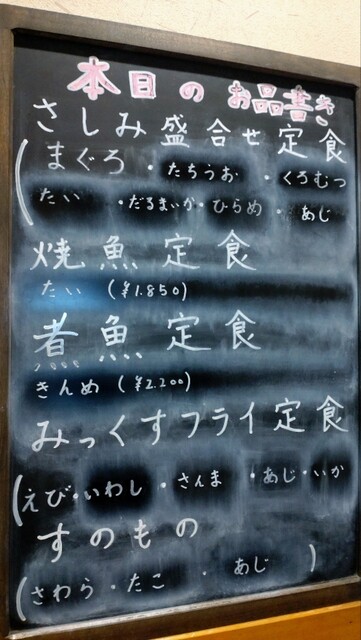 本日のお品書き
さしみ盛合せ定食
(まぐろ・たちうお・くろむつ
たい・だるまいか・ひらめ・あじ
焼魚定食
たい (¥1.850)
煮魚定食
きんめ (¥2.200)
みっくすフライ定食
(えび・いわし・さんま・あじ・いか
すのもの
(さわら・たこ・あじ)